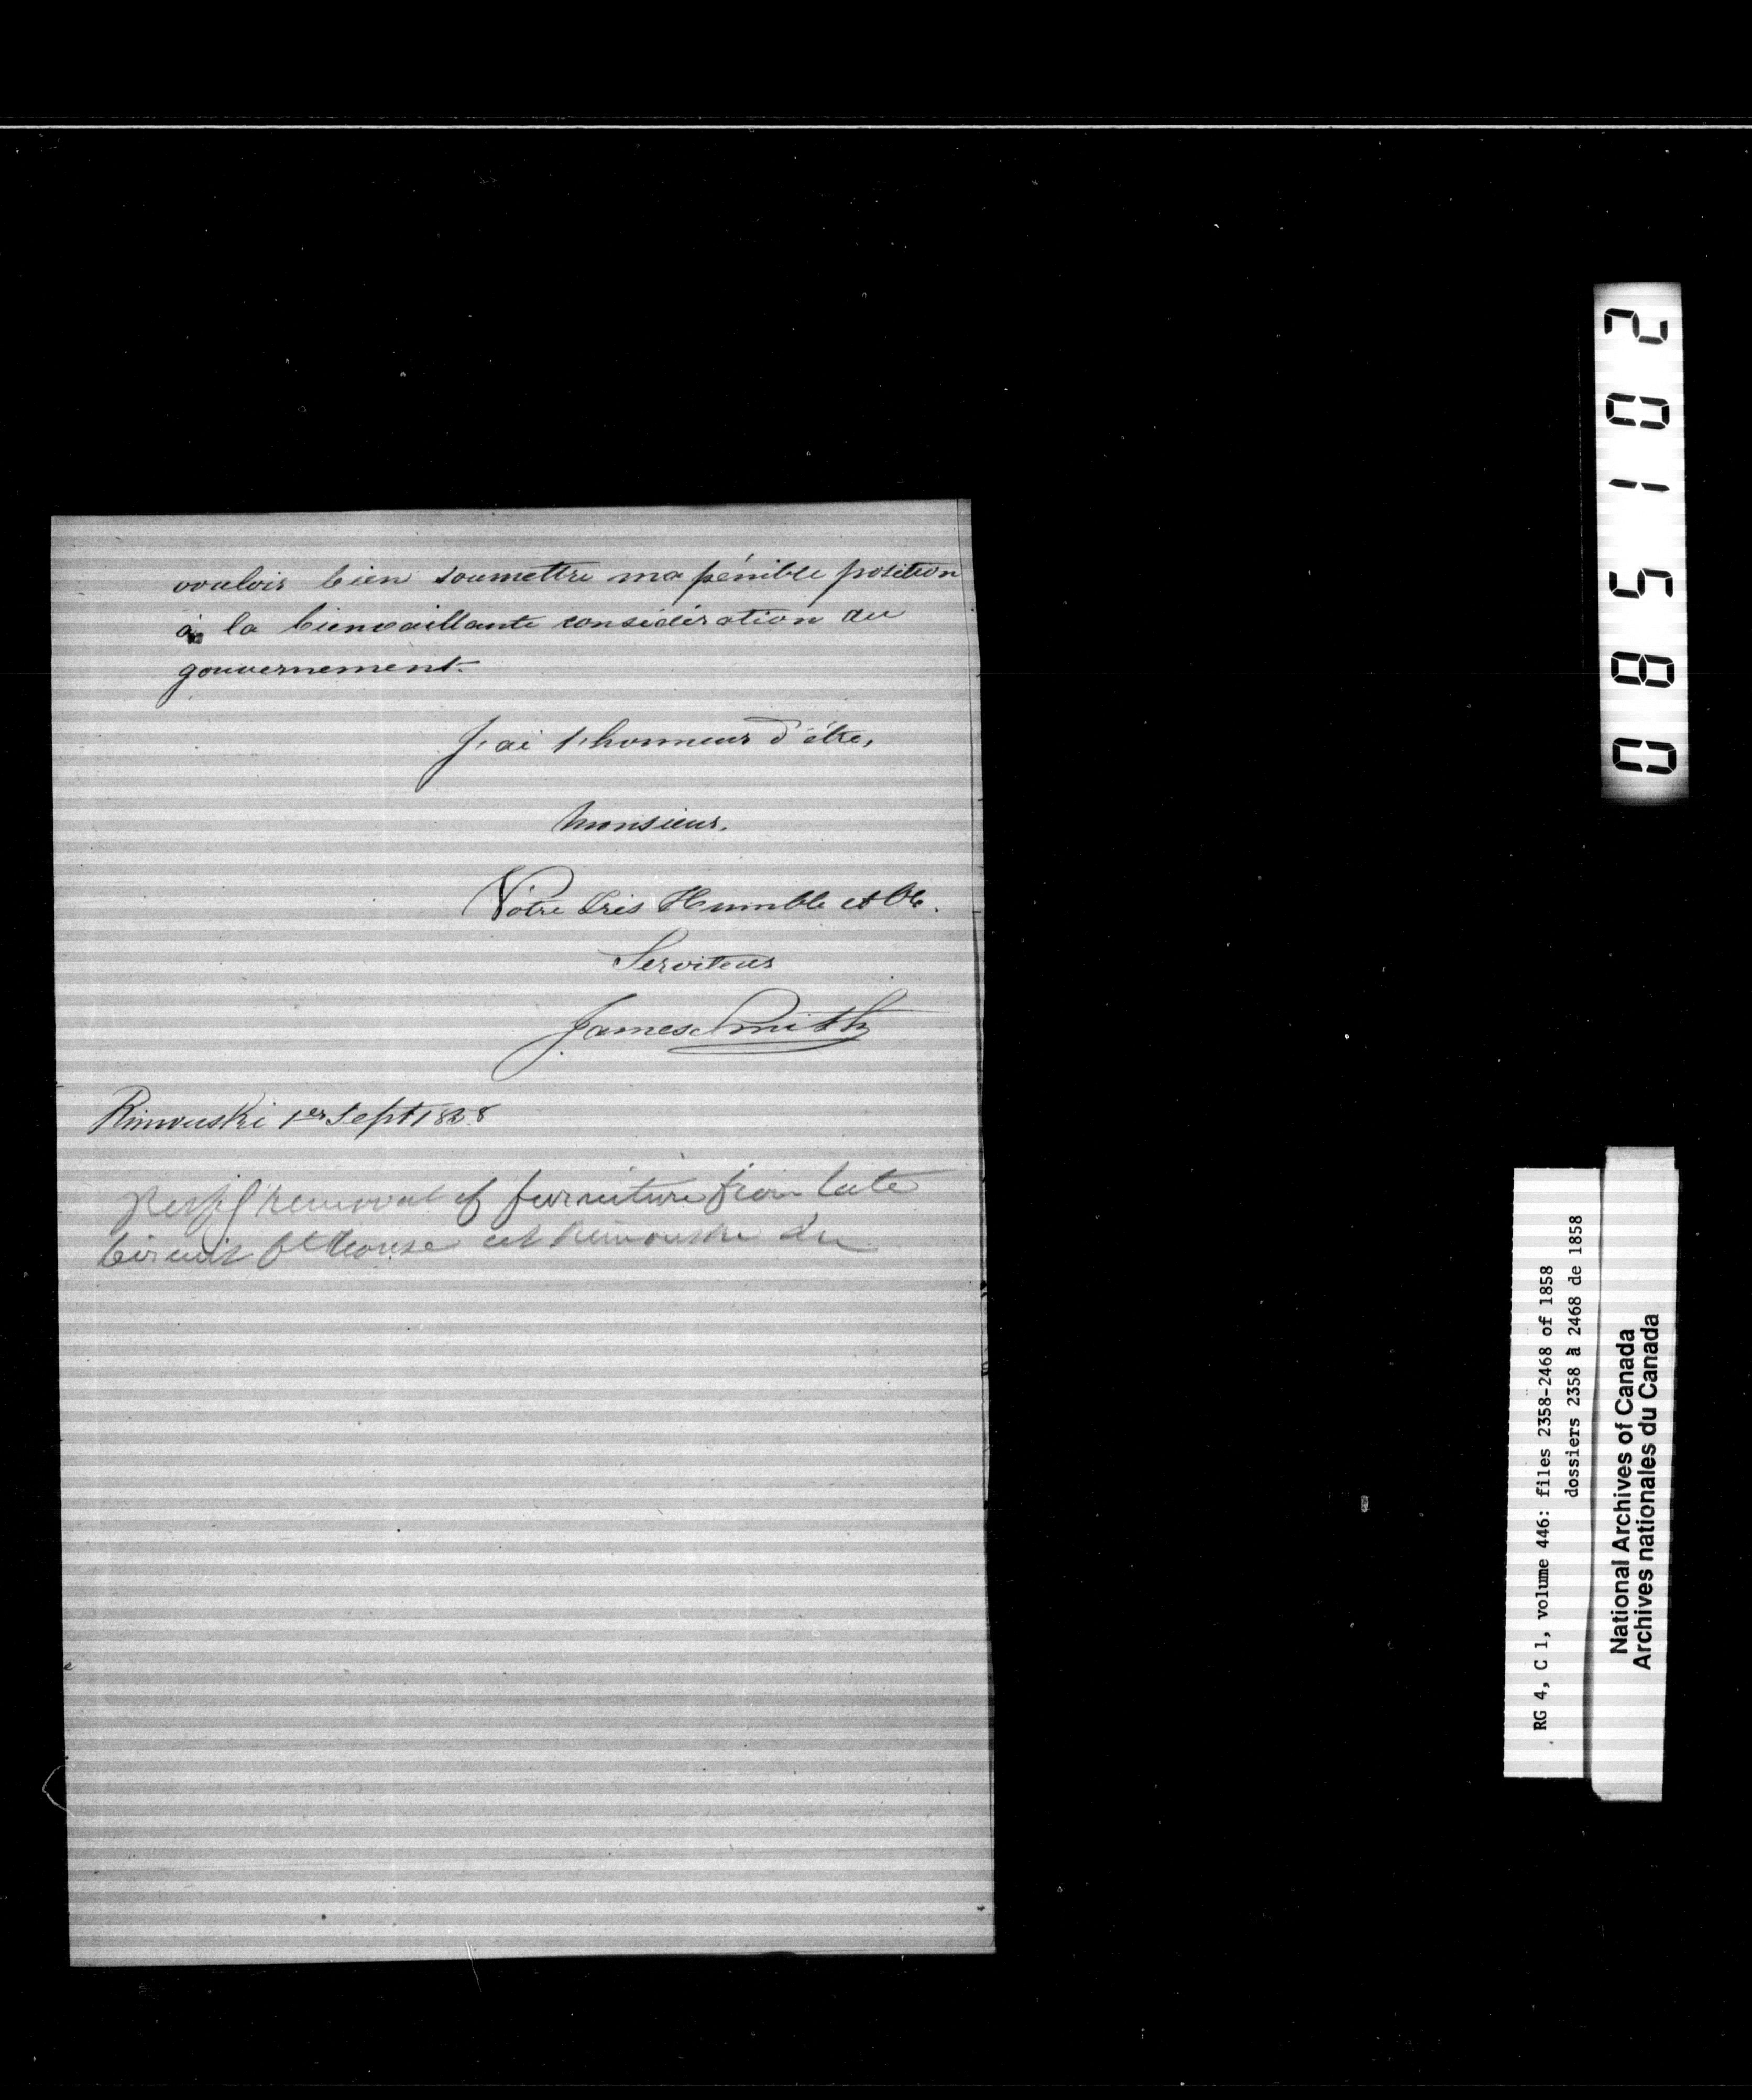 vouloir bien soumettre ma pénible position
à la bienvaillante considération du
gouvernement.
J'ai l'honneur d'être,
Monsieur.
Votre Très Humble et Ob.
Serviteur
James Smith
Rimouski 1er Sept 1858
removal of furniture from late
Circuit Ct House at Rimouski
085102
RG 4, C 1, volume 446: files 2358-2468 of 1858
dossiers 2358 à 2468 de 1858
National Archives of Canada
Archives nationales du Canada